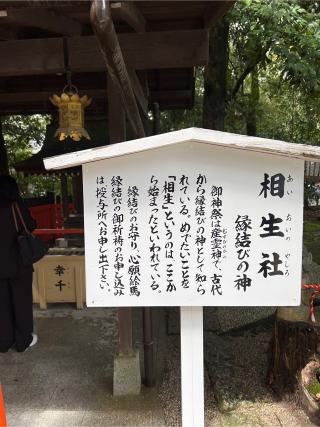 相生社
あい おいの やしろ
縁結びの神
御神祭は産霊神で、古代
むすびのかみ
から縁結びの神として知ら
れている。めでたいことを
「相生」というのは、ここか
ら始まったといわれている。
縁結びのお守り、心願絵馬
縁結びの御祈祷のお申し込み
は授与所へお申し出下さい。
幸
千